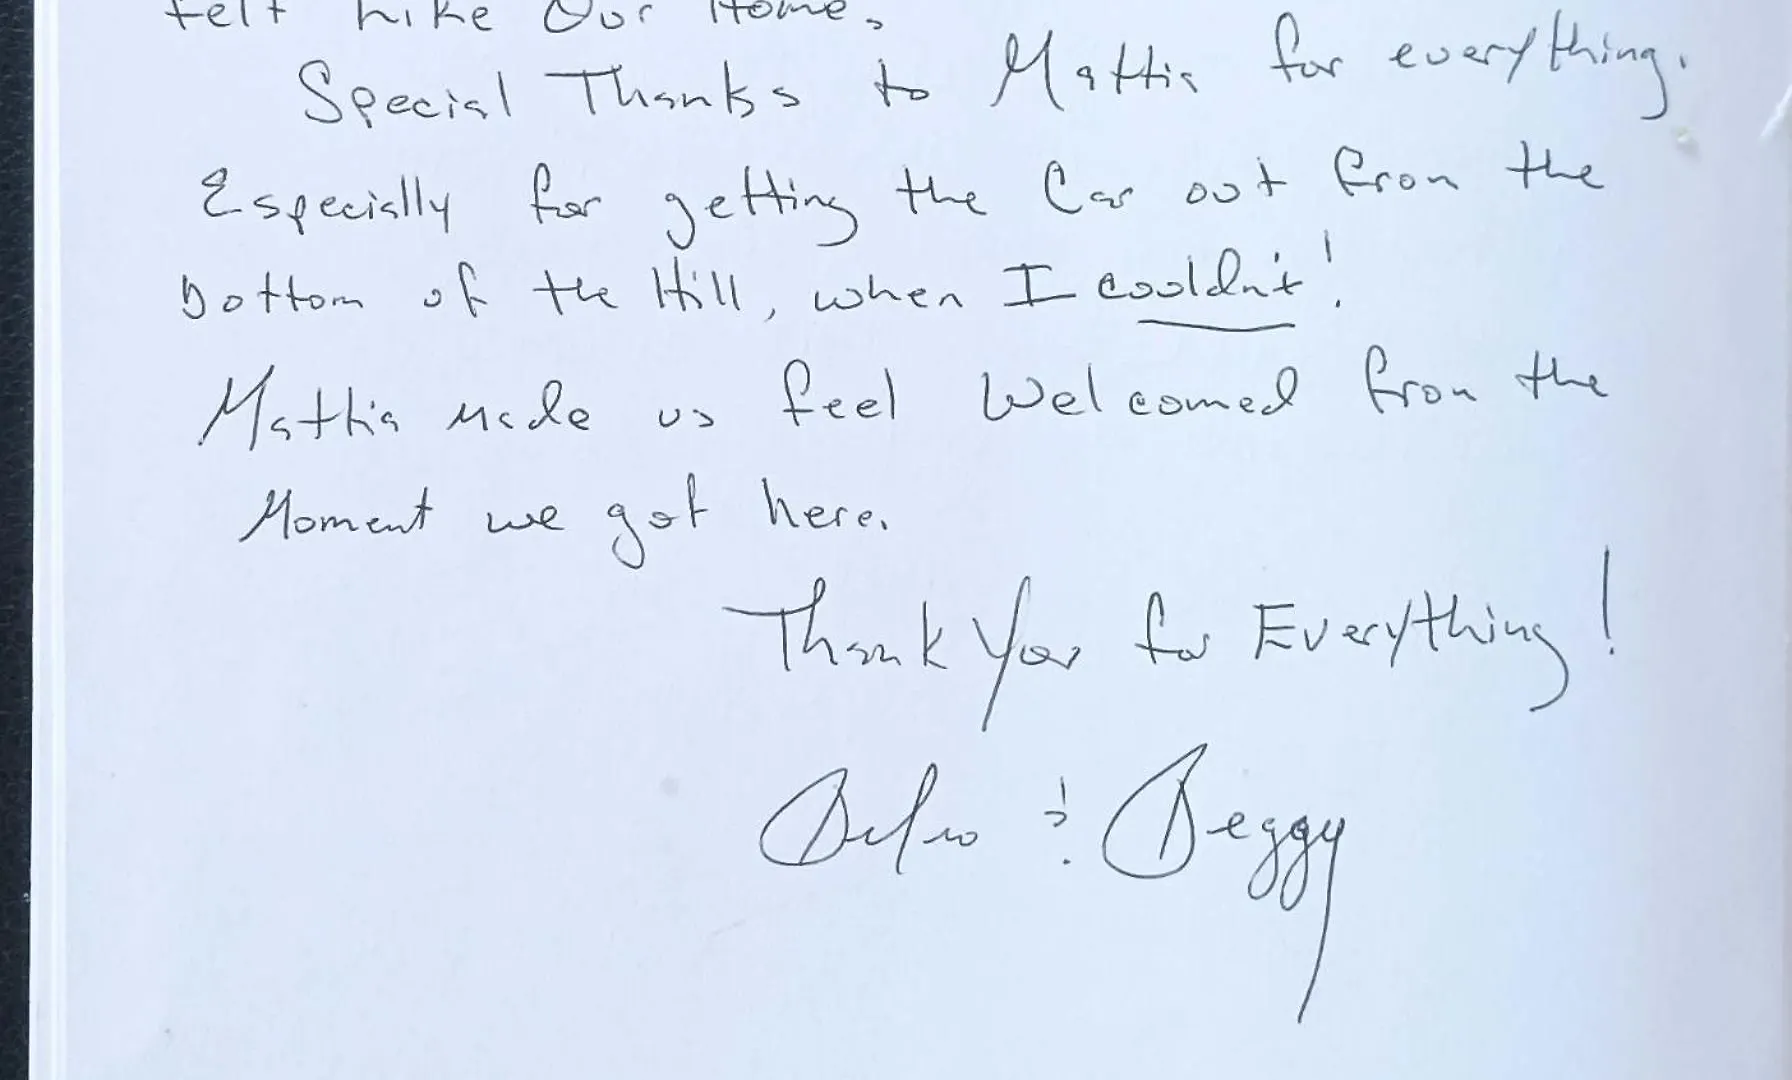 felt Like Our Home.
Special Thanks to Mattia for everything.
Especially for getting the Car out from the
bottom of the Hill, when I couldn't!
Mattia made us feel Welcomed from the
Moment we got here.
Thank You for Everything!
& Peggy